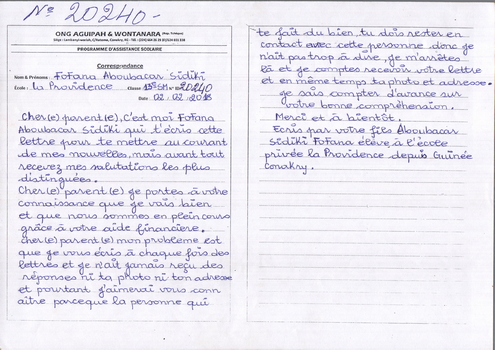 N° 20240-
ONG AGUIPAH & WONTANARA (Rep. Tchèque)
PROGRAMME D'ASSISTANCE SCOLAIRE
Correspondance
Nom & Prénoms: Fofana Aboubacar Sidiki
École: La Providence Classe 13ᵉSM N° 20240
Date 02.02.2018
Cher(e) parent(e), c'est moi Fofana
Aboubacar Sidiki qui t'écris cette
lettre pour te mettre au courant
de mes nouvelles, mais avant tout
recevez mes salutations les plus
distinguées.
Cher(e) parent(e) je portes à votre
connaissance que je vais bien
et que nous sommes en plein cours
grâce à votre aide financière.
Cher(e) parent(e) mon problème est
que je vous écris à chaque fois des
lettres et je n'ait jamais reçu des
réponses ni ta photo ni ton adresse
et pourtant j'aimerai vous conn
aitre parceque la personne qui
te fait du bien, tu dois rester en
contact avec cette personne donc je
n'ait pas trop à dire, je m'arrêtes
là et je comptes recevoir votre lettre
et en même temps ta photo et adresse.
je sais compter d'avance sur
votre bonne compréhension.
Merci et à bientôt.
Ecris par votre fils Aboubacar
Sidiki Fofana élève à l'école
privée la Providence depuis Guinée
Conakry.